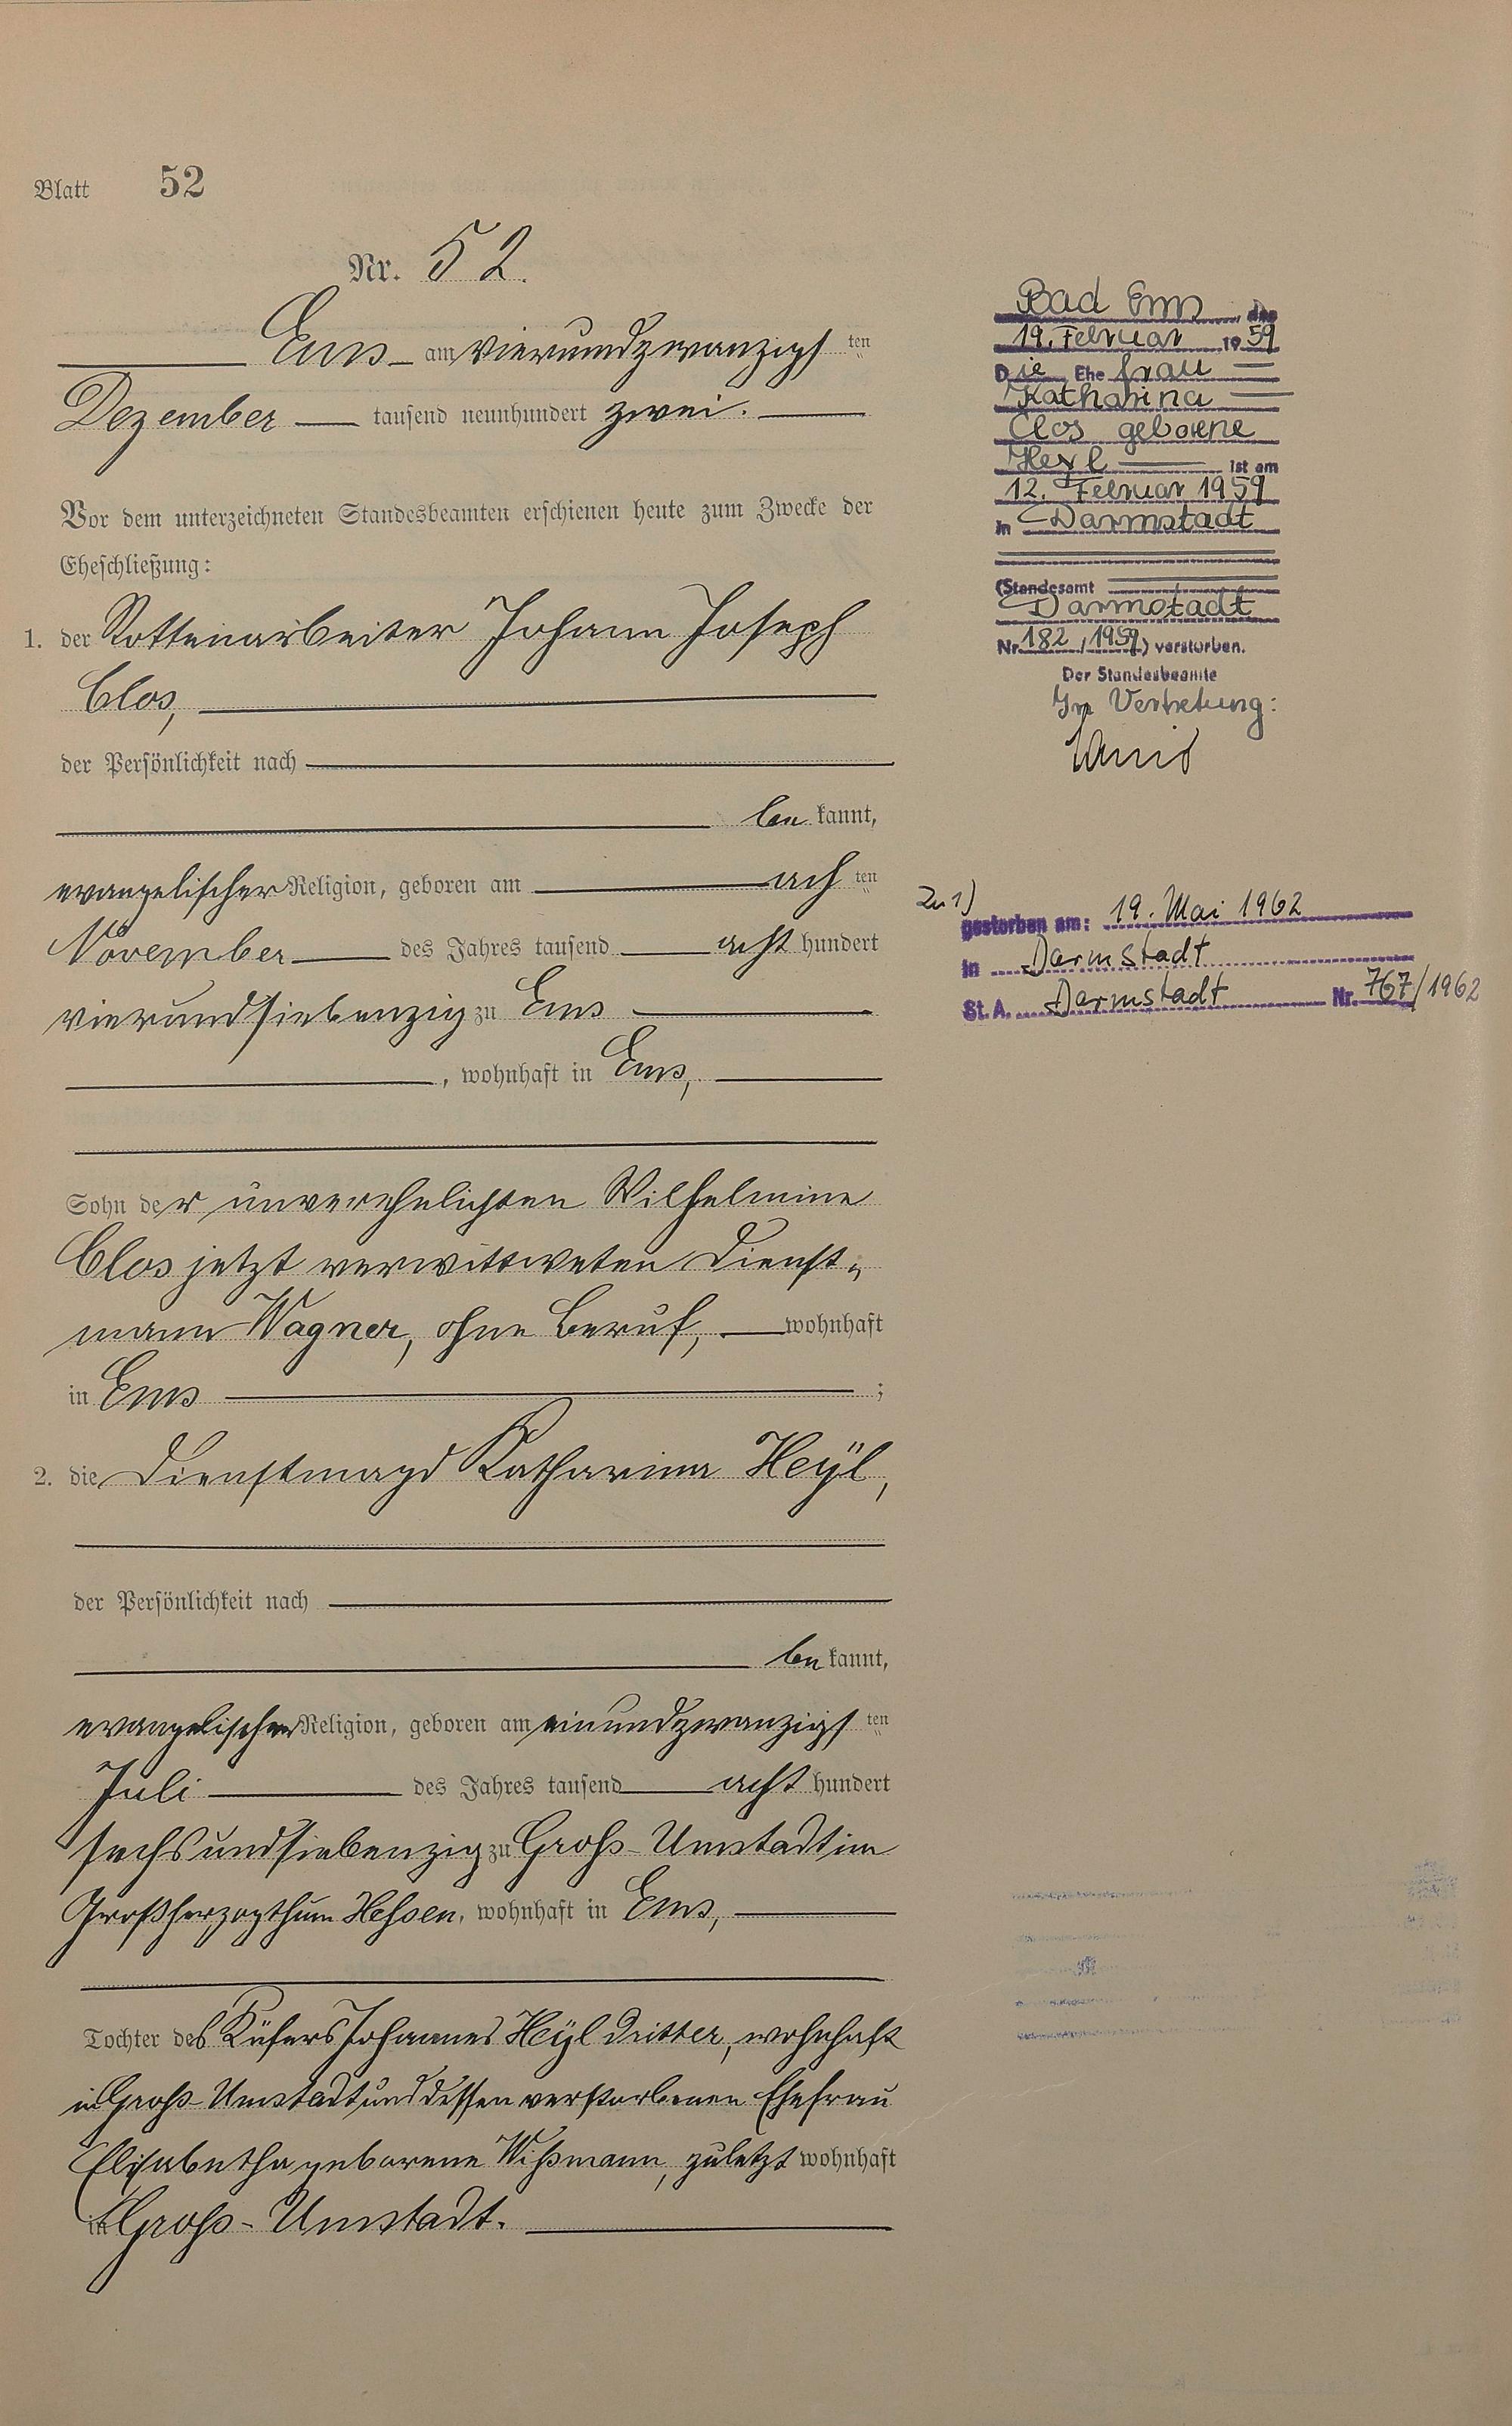 Blatt 52
Nr. 52.
Ems am vierundzwanzigsten
Dezember tausend neunhundert zwei.
Vor dem unterzeichneten Standesbeamten erschienen heute zum Zwecke der
Eheschließung:
1. der Rottenarbeiter Johann Joseph
Clos,
der Persönlichkeit nach
bekannt,
evangelischer Religion, geboren am achten
November des Jahres tausend acht hundert
vierundsiebenzig zu Ems
, wohnhaft in Ems,
Sohn der unverehelichten Wilhelmine
Clos jetzt verwittweten Dienst-
mann Wagner, ohne Beruf, wohnhaft
in Ems ;
2. die Dienstmagd Katharina Heÿl,
der Persönlichkeit nach
bekannt,
evangelischer Religion, geboren am einundzwanzigsten
Juli des Jahres tausend acht hundert
sechsundsiebenzig zu Groß-Umstadt im
Großherzogthum Hessen, wohnhaft in Ems,
Tochter des Küfers Johannes Heÿl dritter, wohnhaft
in Groß-Umstadt und dessen verstorbenen Ehefrau
Elisabetha geborene Wißmann, zuletzt wohnhaft
in Groß-Umstadt.
Bad Ems, den
19. Februar 1959
Die Ehefrau
Katharina
Clos geborene
Heyl ist am
12. Februar 1959
in Darmstadt
(Standesamt
Darmstadt
Nr. 182/1959) verstorben.
Der Standesbeamte
In Vertretung:
Zu 1)
gestorben am: 19. Mai 1962
in Darmstadt
St. A. Darmstadt Nr. 767/1962